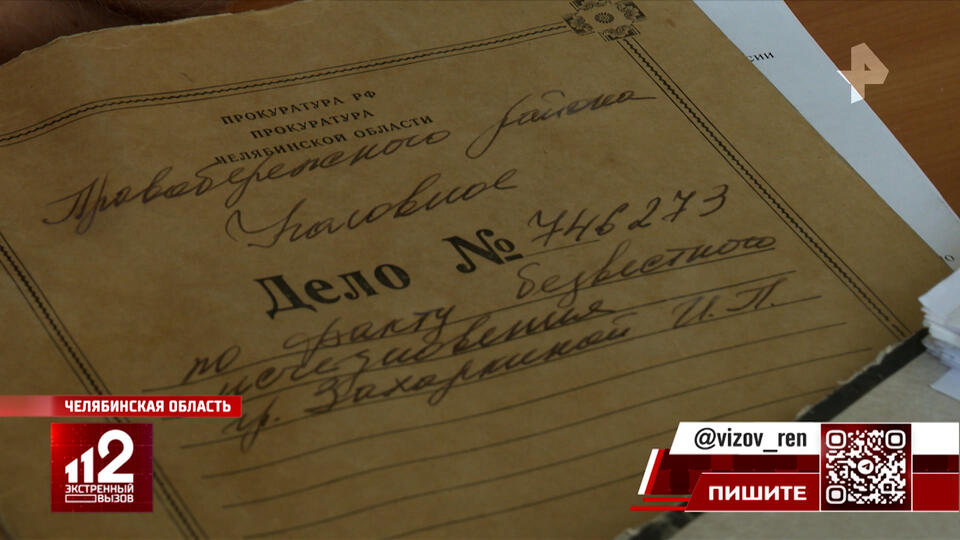 ПРОКУРАТУРА РФ
ПРОКУРАТУРА
ЧЕЛЯБИНСКОЙ ОБЛАСТИ
Правобережного района
Уголовное
Дело № 746273
по факту безвестного
исчезновения
гр. Захаркиной И.П.
ССИИ
ЧЕЛЯБИНСКАЯ ОБЛАСТЬ
112
ЭКСТРЕННЫЙ
ВЫЗОВ
@vizov_ren
ПИШИТЕ